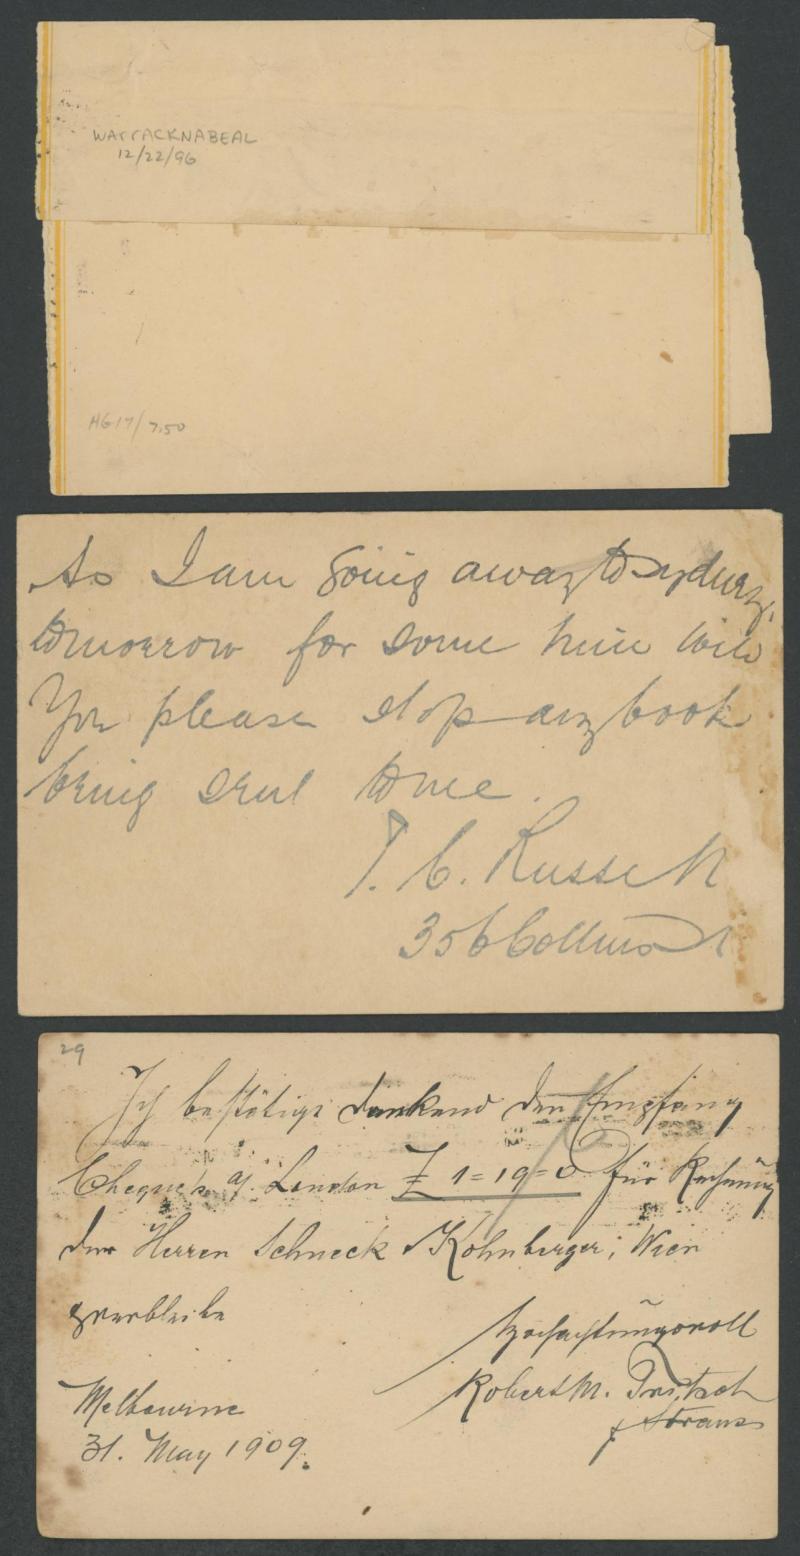 WARRACKNABEAL
12/22/96
HG17/7.50
As I am going away to Sydney,
tomorrow for some time will
You please stop any book
being sent to me.
T. C. Russell
356 Collins St
29
Ich bestätige dankend den Empfang
Cheque's a/ London £ 1=19=0 für Rechnung
der Herren Schneck & Kohnberger, Wien
verbleibe
Hochachtungsvoll
Robert M. Tritsch
Strauss
Melbourne
31. May 1909.